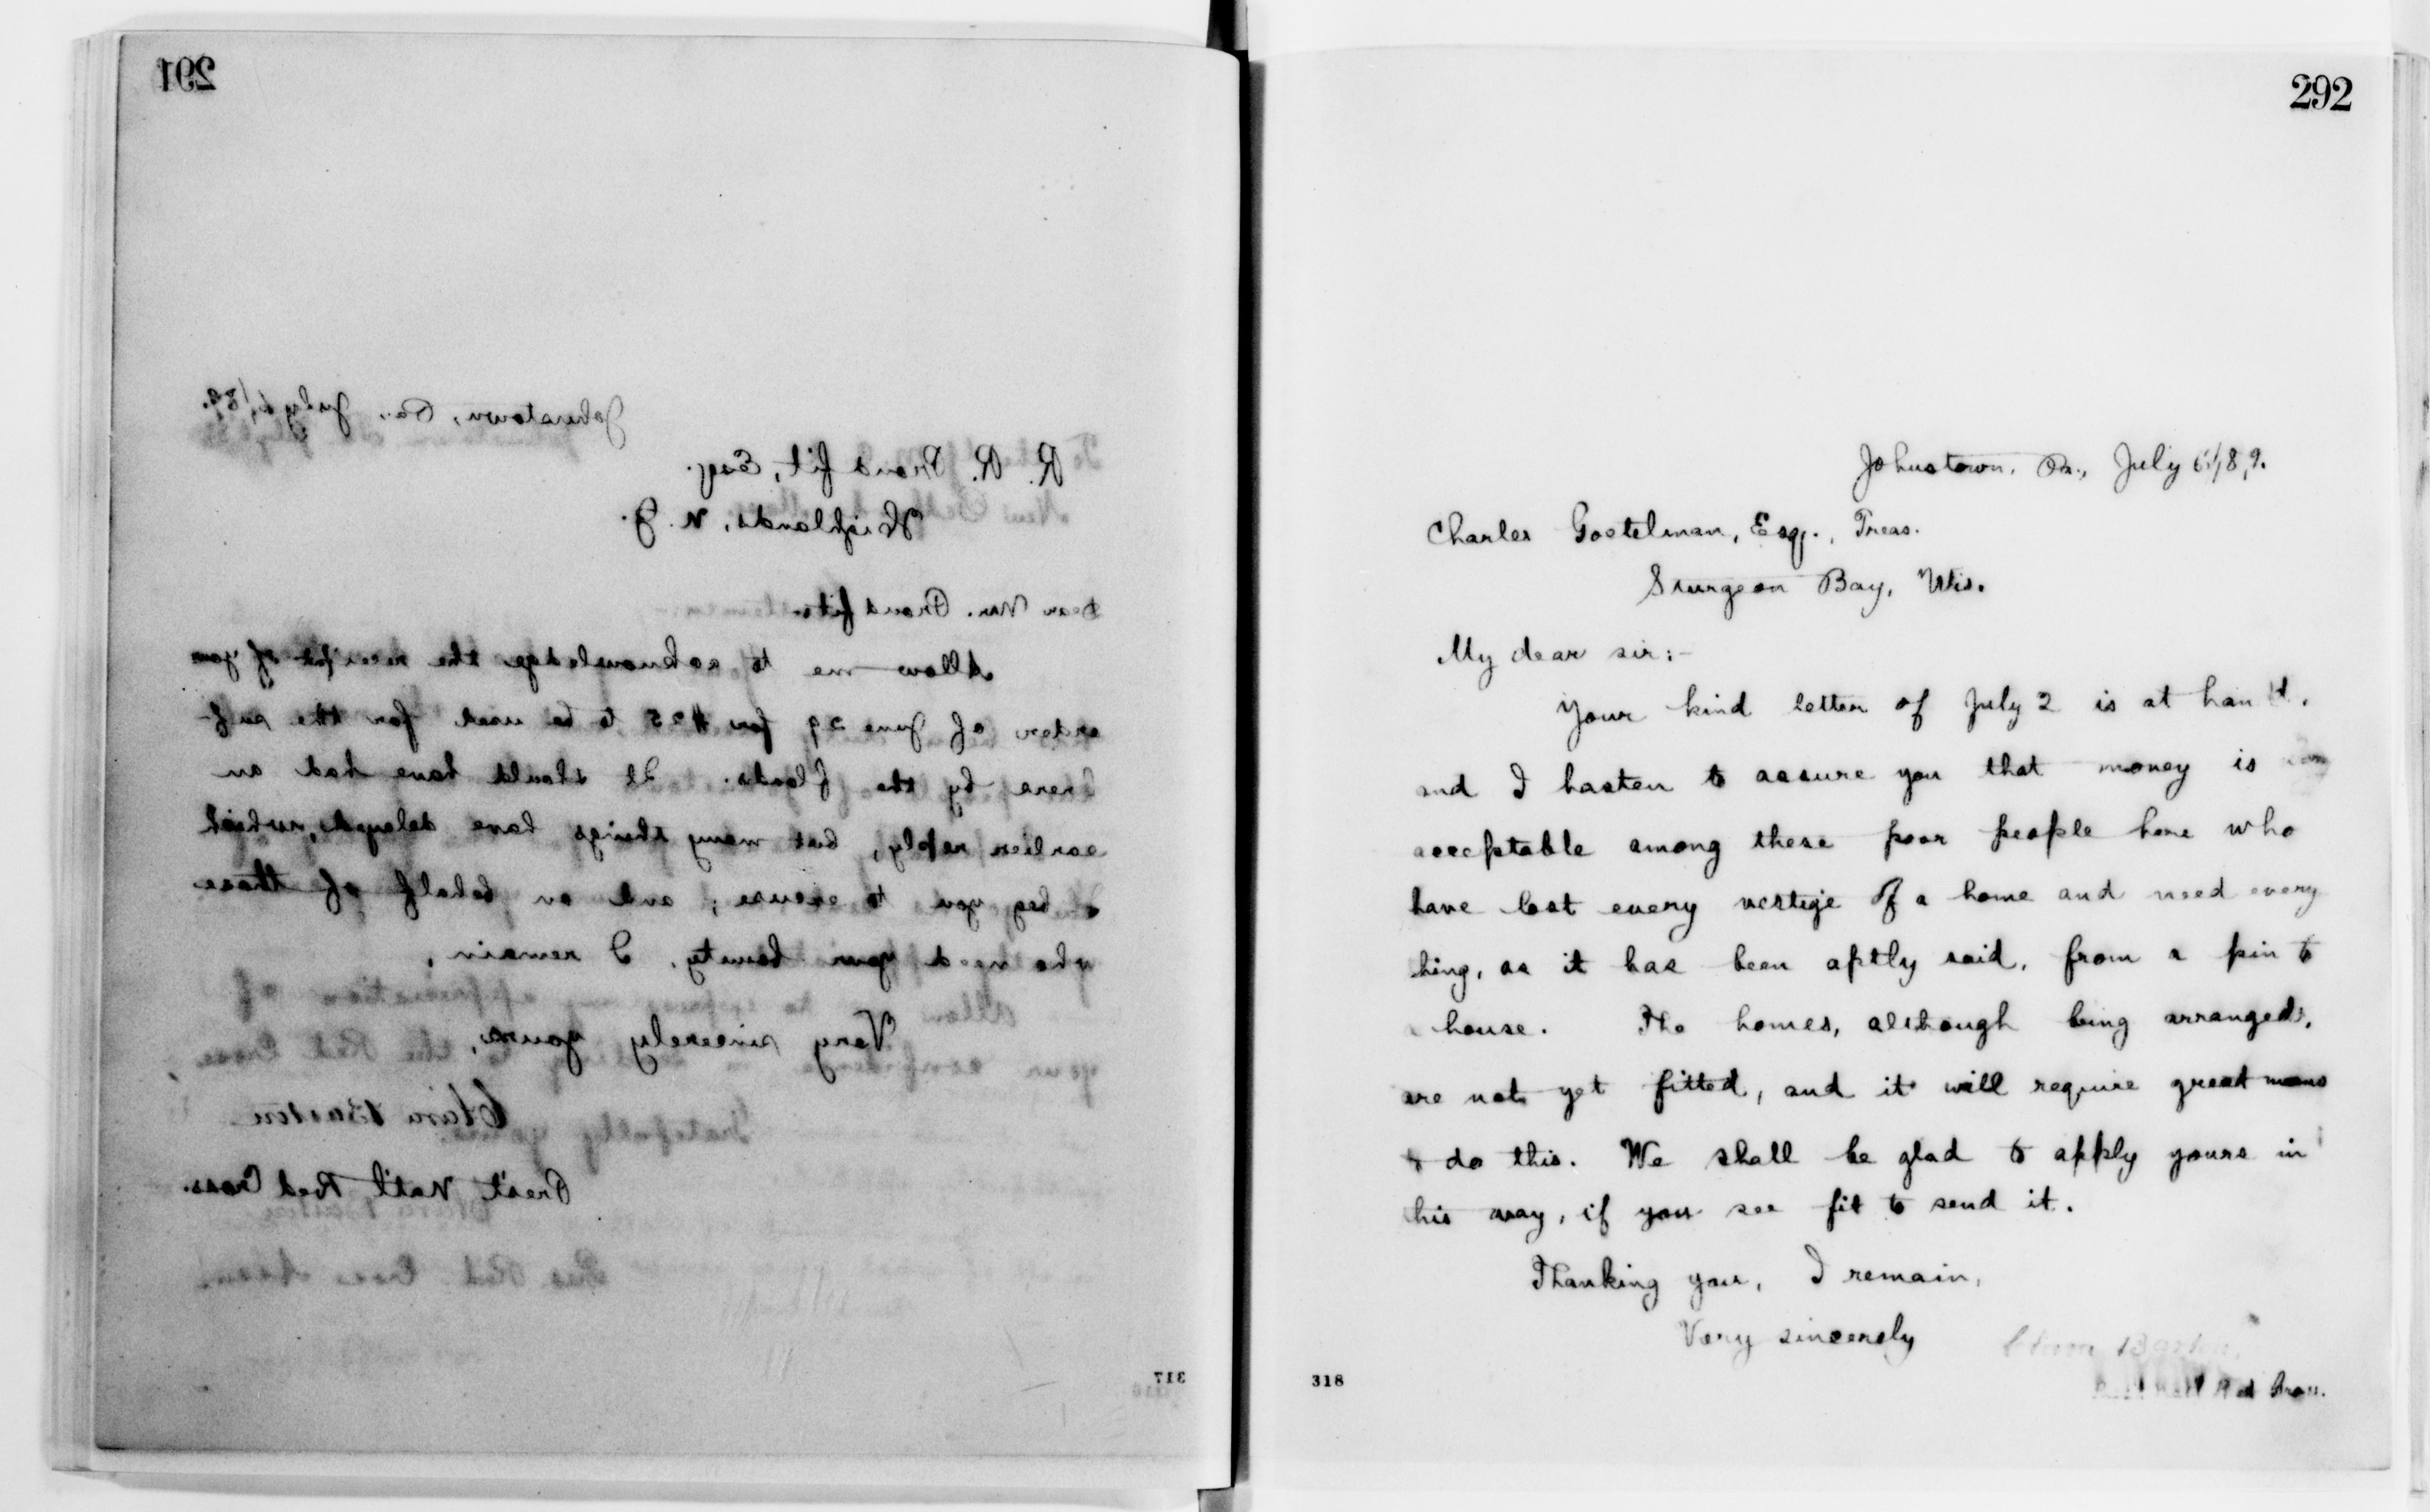 291
Johnstown, Pa., July 6/89.
R. R. Proudfit, Esq.
Highlands, N. J.
Dear Mr. Proudfit:
Allow me to acknowledge the receipt of your
order of June 29 for $25 to be used for the suf-
ferers by the floods. It should have had an
earlier reply, but many things have delayed, which
I beg you to excuse; and on behalf of those
who need your bounty, I remain,
Very sincerely yours,
Clara Barton
Pres't Nat'l Red Cross.
317
292
Johnstown, Pa., July 6/89.
Charles Goetelman, Esq., Treas.
Sturgeon Bay, Wis.
My dear sir:-
Your kind letter of July 2 is at hand,
and I hasten to assure you that money is
acceptable among these poor people here who
have lost every vestige of a home and need every
hing, as it has been aptly said, from a pin to
a house. The homes, although being arranged,
are not yet fitted, and it will require great means
to do this. We shall be glad to apply yours in
this way, if you see fit to send it.
Thanking you, I remain,
Very sincerely
Clara Barton
Red Cross.
318